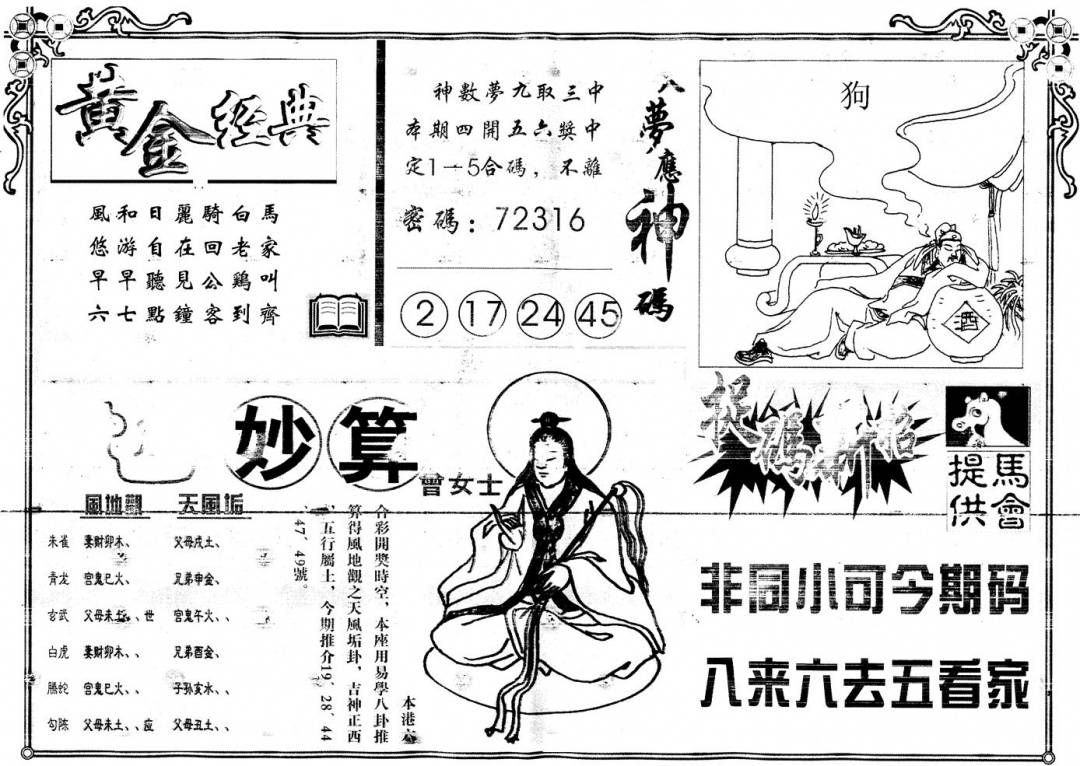 黃金經典
風和日麗騎白馬
悠游自在回老家
早早聽見公鷄叫
六七點鐘客到齊
神數夢九取三中
本期四開五六獎中
定1一5合碼，不離
密碼：72316
2 17 24 45
八夢應神碼
狗
酒
妙算
曾女士
風地觀 天風垢
朱雀 妻財卯木、 父母戌土、
青龙 官鬼巳火、 兄弟申金、
玄武 父母未土、、世 官鬼午火、、
白虎 妻財卯木、、 兄弟酉金、
騰蛇 官鬼巳火、、 子孙亥水、、
勾陈 父母未土、、应 父母丑土、、
本港六
合彩開獎時空，本座用易學八卦推
算得風地觀之天風垢卦，吉神正西
，五行屬土，今期推介19、28、44
、47、49號。
馬會
提供
非同小可今期码
八来六去五看家